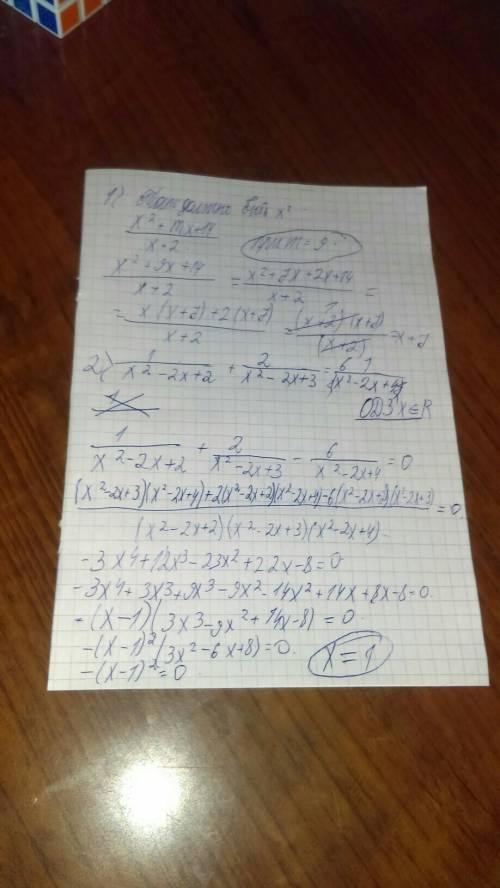 1) должно быть x²
x² + mx+14 / x+2 при m = 9
x² + 9x + 14 / x+2 = x² + 7x + 2x + 14 / x+2 =
= x(x+7) + 2(x+7) / x+2 = (x+2)(x+7) / (x+2) = x+7
2) 1 / x² - 2x + 2 + 2 / x² - 2x + 3 = 6 / x² - 2x + 4
ОДЗ x∈R
1 / x² - 2x + 2 + 2 / x² - 2x + 3 - 6 / x² - 2x + 4 = 0
(x² - 2x + 3)(x² - 2x + 4) + 2(x² - 2x + 2)(x² - 2x + 4) - 6(x² - 2x + 2)(x² - 2x + 3) / (x² - 2x + 2)(x² - 2x + 3)(x² - 2x + 4) = 0
-3x⁴ + 12x³ - 23x² + 22x - 8 = 0
-3x⁴ + 3x³ + 9x³ - 9x² - 14x² + 14x + 8x - 8 = 0.
-(x-1)(3x³ - 9x² + 14x - 8) = 0
-(x-1)²(3x² - 6x + 8) = 0.
-(x-1)² = 0
x = 1